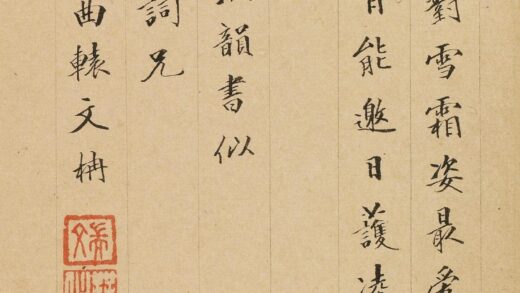 雪霜姿最
能邀日護
韻書似
詞兄
曲轅文冉